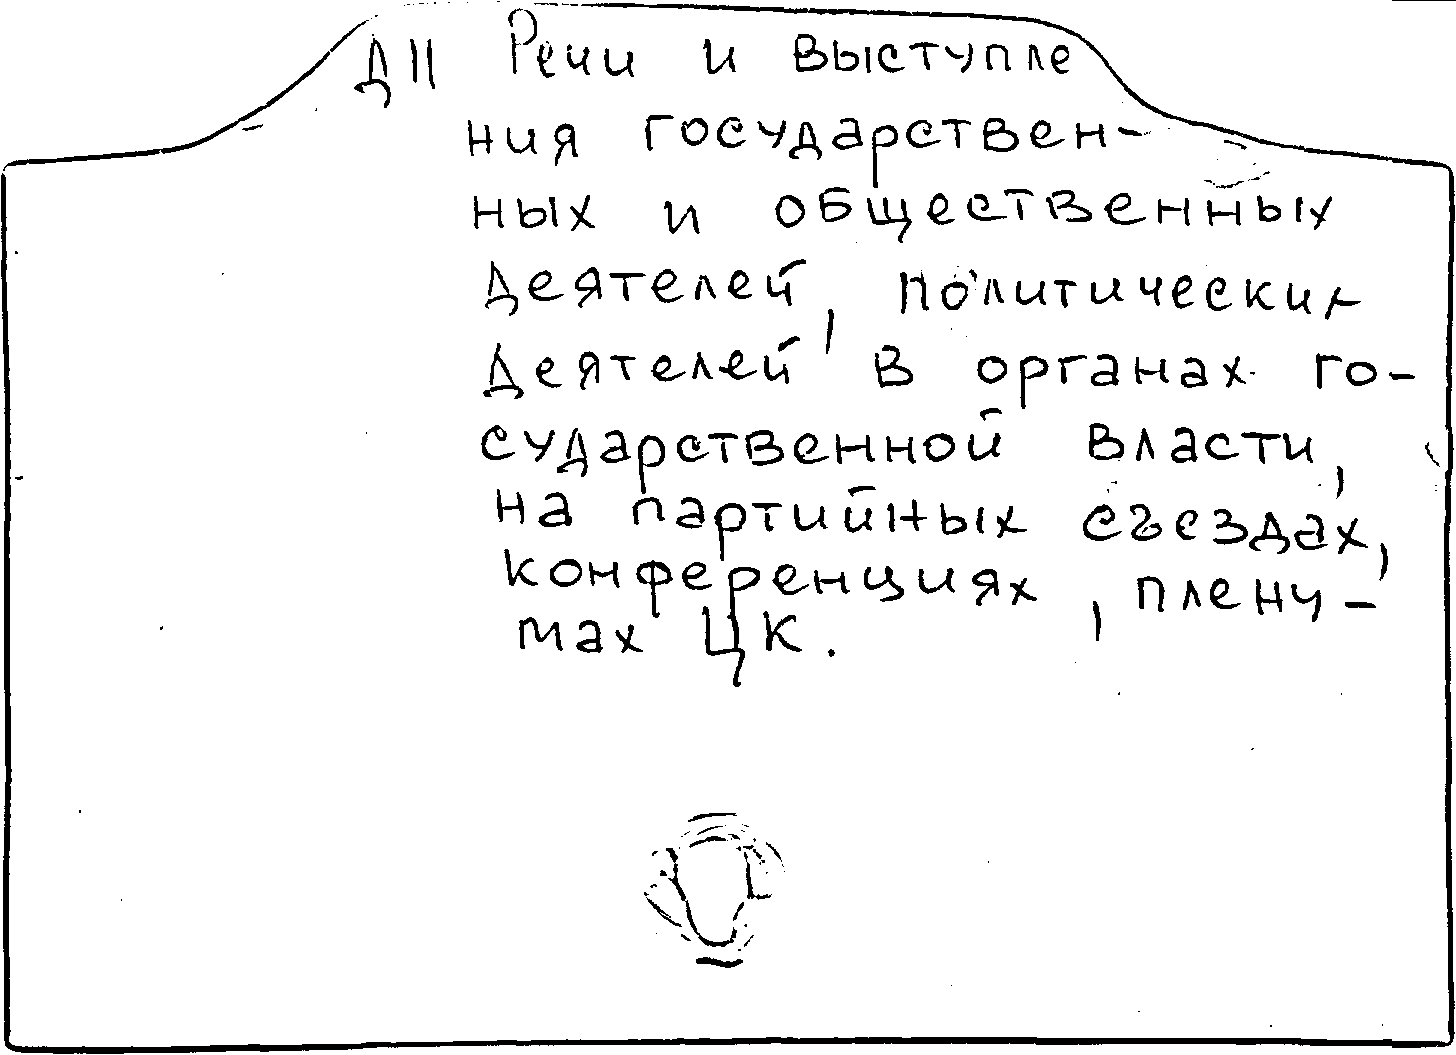 Д11 Речи и выступле
ния государствен-
ных и общественных
деятелей, политических
деятелей в органах го-
сударственной власти,
на партийных съездах,
конференциях, плену-
мах ЦК.